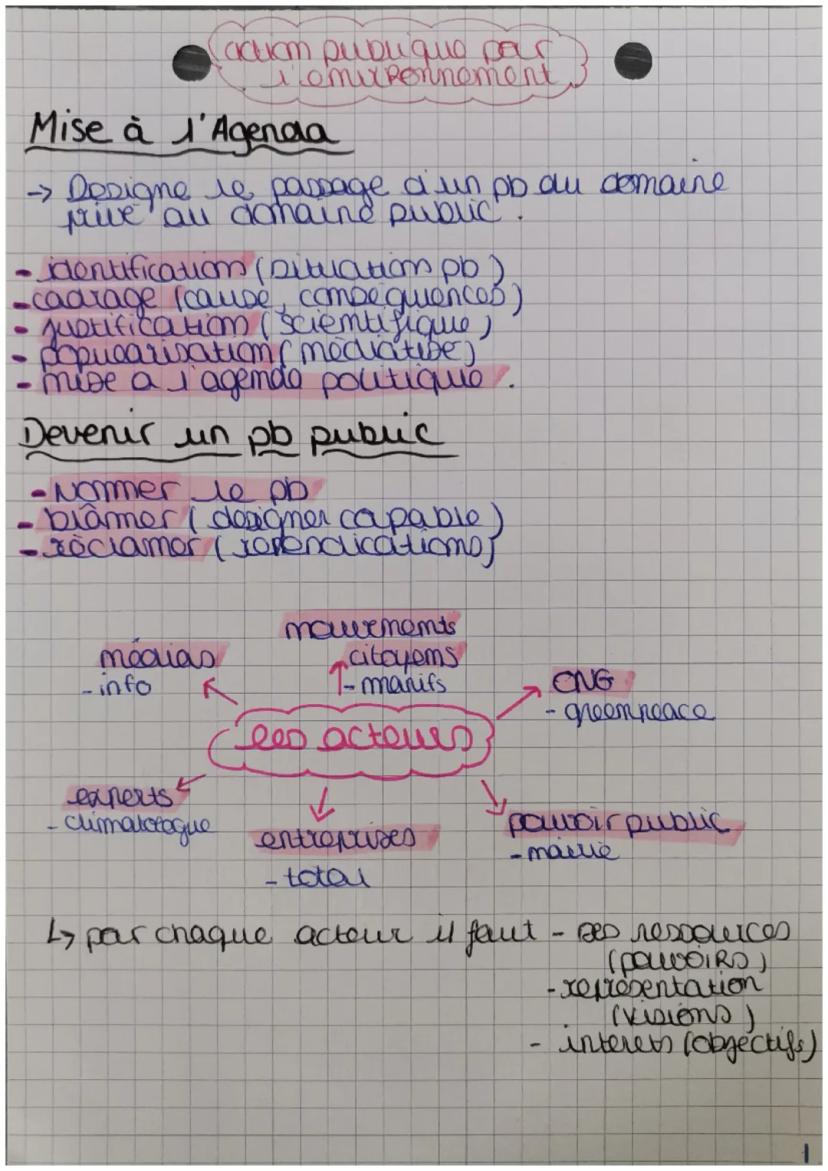 action publique par
l'environnement
Mise à l'Agenda
→ Designe le passage d'un pb du domaine
privé au domaine public.
- identification (situation pb)
- cadrage (cause, conséquences)
- justification (scientifique)
- popularisation (médiatisé)
- mise a l'agenda politique.
Devenir un pb public
- Nommer le pb
- blâmer (designer capable)
- réclamer (revendications)
mouvements
citoyens
- manifs
médias
- info
ONG
- greenpeace
les acteurs
experts
- climatologue
entreprises
- total
pouvoir public
- mairie
↳ par chaque acteur il faut - ses ressources
(pouvoirs)
- représentation
(visions)
- interets (objectifs)
1